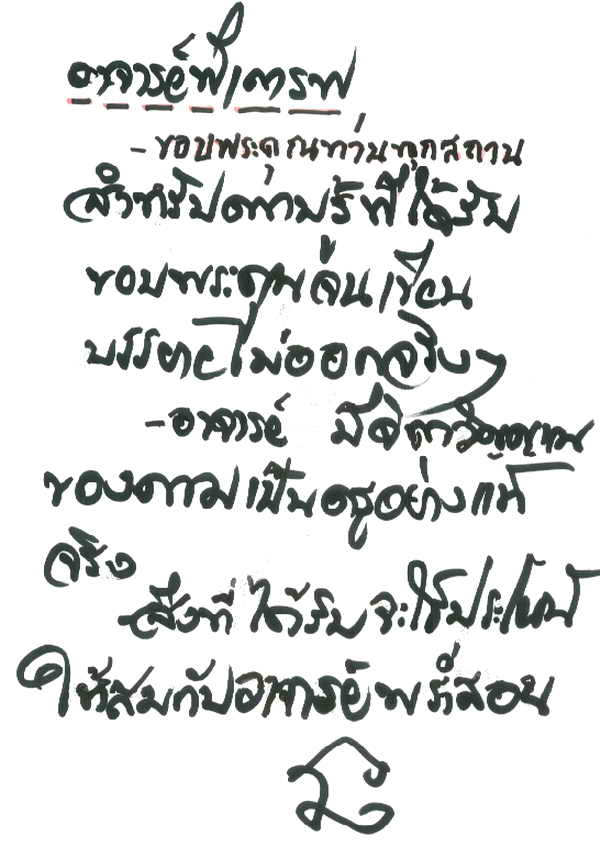 อาจารย์ที่เคารพ
- ขอบพระคุณท่านทุกสถาน
สำหรับความรู้ที่ได้รับ
ขอบพระคุณล้นเขียน
บรรยายไม่ออกจริงๆ
- อาจารย์ มีจิตวิญญาณ
ของความเป็นครูอย่างแท้
จริง
สิ่งที่ได้รับจะใช้ประโยชน์
ให้สมกับอาจารย์พร่ำสอน